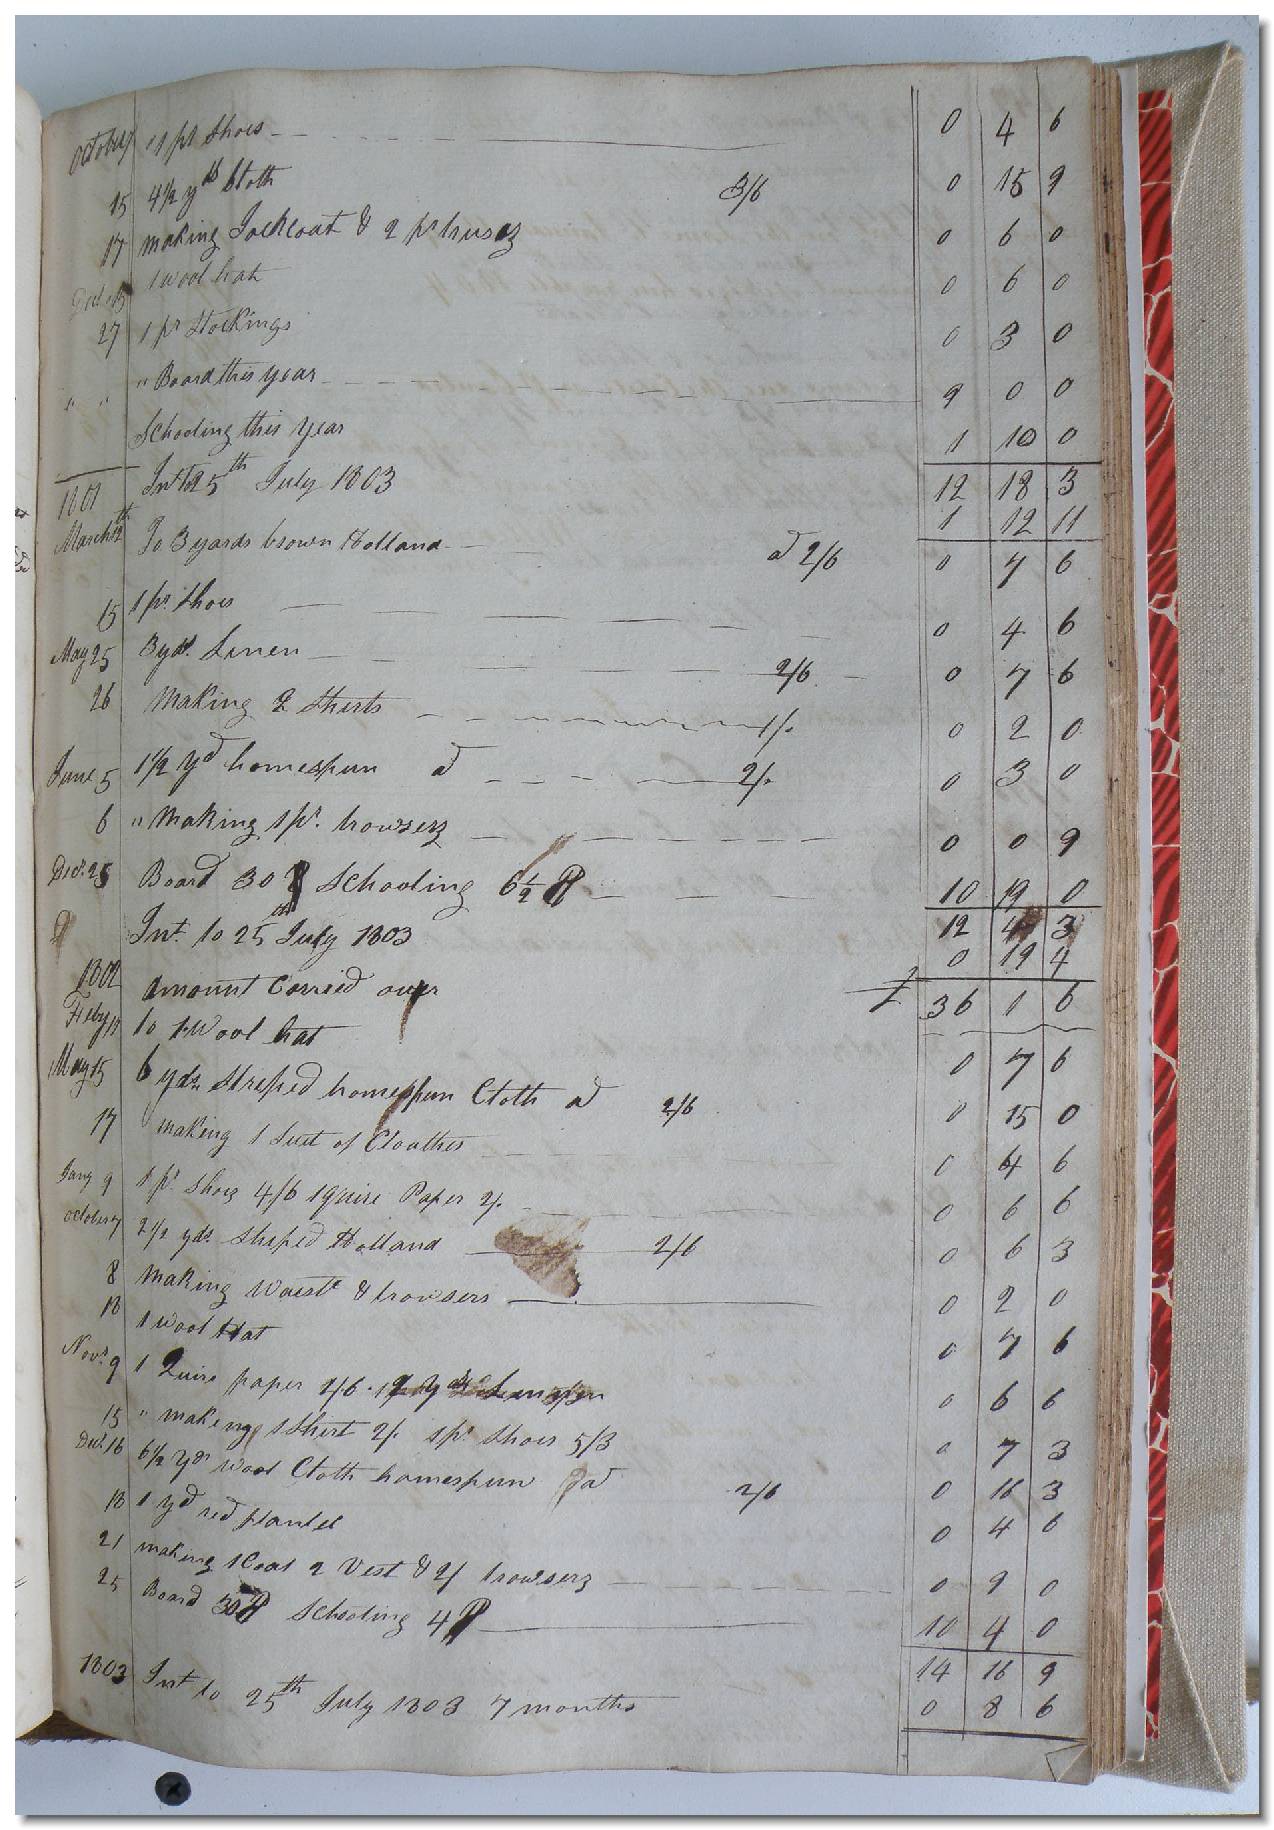 October 1 pr Shoes 0 4 6
15 4½ yds Cloth 3/6 0 15 9
17 making Jockcoat & 2 pr trusez 0 6 0
Decr 1 wool hat 0 6 0
27 1 pr Stockings 0 3 0
" " " Board this year 9 0 0
Schooling this year 1 10 0
12 18 3
Int to 25th July 1803 1 12 11
1801
March To 3 yards brown Holland a 2/6 0 7 6
15 1 pr. Shoes 0 4 6
May 25 3 yds. Linen 2/6 0 7 6
26 Making 2 Shirts 1/. 0 2 0
June 5 1½ yd homespun a 2/. 0 3 0
6 " Making 1 pr. trowserz 0 0 9
Decr. 25 Board 30 Schooling 6½ 10 19 0
12 4 3
Int. to 25th July 1803 0 19 4
1802 amount Carreid over 36 1 6
Feby 11 to 1 Wool hat 0 7 6
May 15 6 yds Streped homespun Cloth a 2/6 0 15 0
17 making 1 Suit of Cloathes 0 4 6
Jany 9 1 pr. Shoes 4/6 1 quire Paper 2/. 0 6 6
October 7 2½ yds. Streped Holland 2/6 0 6 3
8 Making Waistt & trowsers 0 2 0
18 1 wool Hat 0 7 6
Novr. 9 1 Quire paper 0 6 6
15 " making 1 Shirt 2/. 1 pr. Shoes 5/3 0 7 3
Decr. 16 6½ yds wool Cloth homespun a 2/6 0 16 3
18 1 yd red flanlel 0 4 6
21 making 1 Coat 2 Vest & 2 trowserz 0 9 0
25 Board 30 Schooling 4 10 4 0
14 16 9
1803 Int to 25th July 1803 7 months 0 8 6